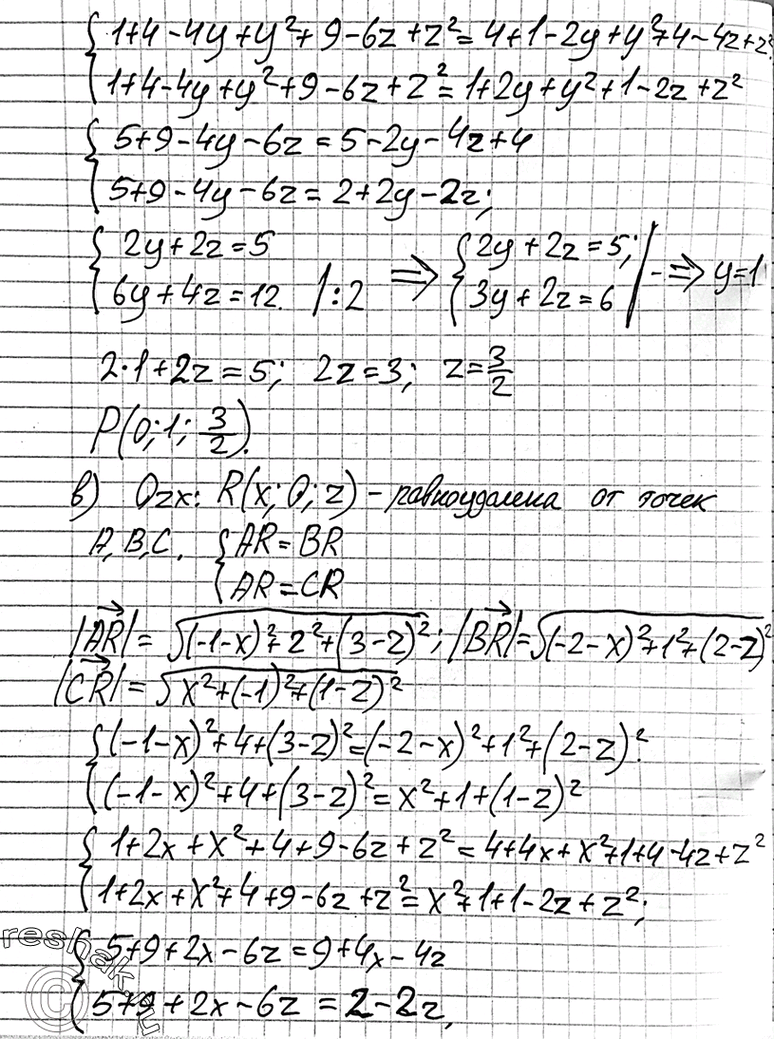 { 1+4-4y+y²+9-6z+z²=4+1-2y+y²+4-4z+z²;
{ 1+4-4y+y²+9-6z+z²=1+2y+y²+1-2z+z²
{ 5+9-4y-6z=5-2y-4z+4
{ 5+9-4y-6z=2+2y-2z;
{ 2y+2z=5 ⇒ { 2y+2z=5; | - ⇒ y=1
{ 6y+4z=12. |:2 { 3y+2z=6
2·1+2z=5; 2z=3; z=3/2
P(0;1; 3/2).
в) Ozx: R(x; 0; z) - равноудалена от точек
A, B, C. { AR=BR
{ AR=CR
|AR→|=√((-1-x)²+2²+(3-z)²); |BR→|=√((-2-x)²+1²+(2-z)²)
|CR→|=√(x²+(-1)²+(1-z)²)
{ (-1-x)²+4+(3-z)²=(-2-x)²+1²+(2-z)².
{ (-1-x)²+4+(3-z)²=x²+1+(1-z)²
{ 1+2x+x²+4+9-6z+z²=4+4x+x²+1+4-4z+z²
{ 1+2x+x²+4+9-6z+z²=x²+1+1-2z+z²;
{ 5+9+2x-6z=9+4x-4z
{ 5+9+2x-6z=2-2z,
reshak.ru